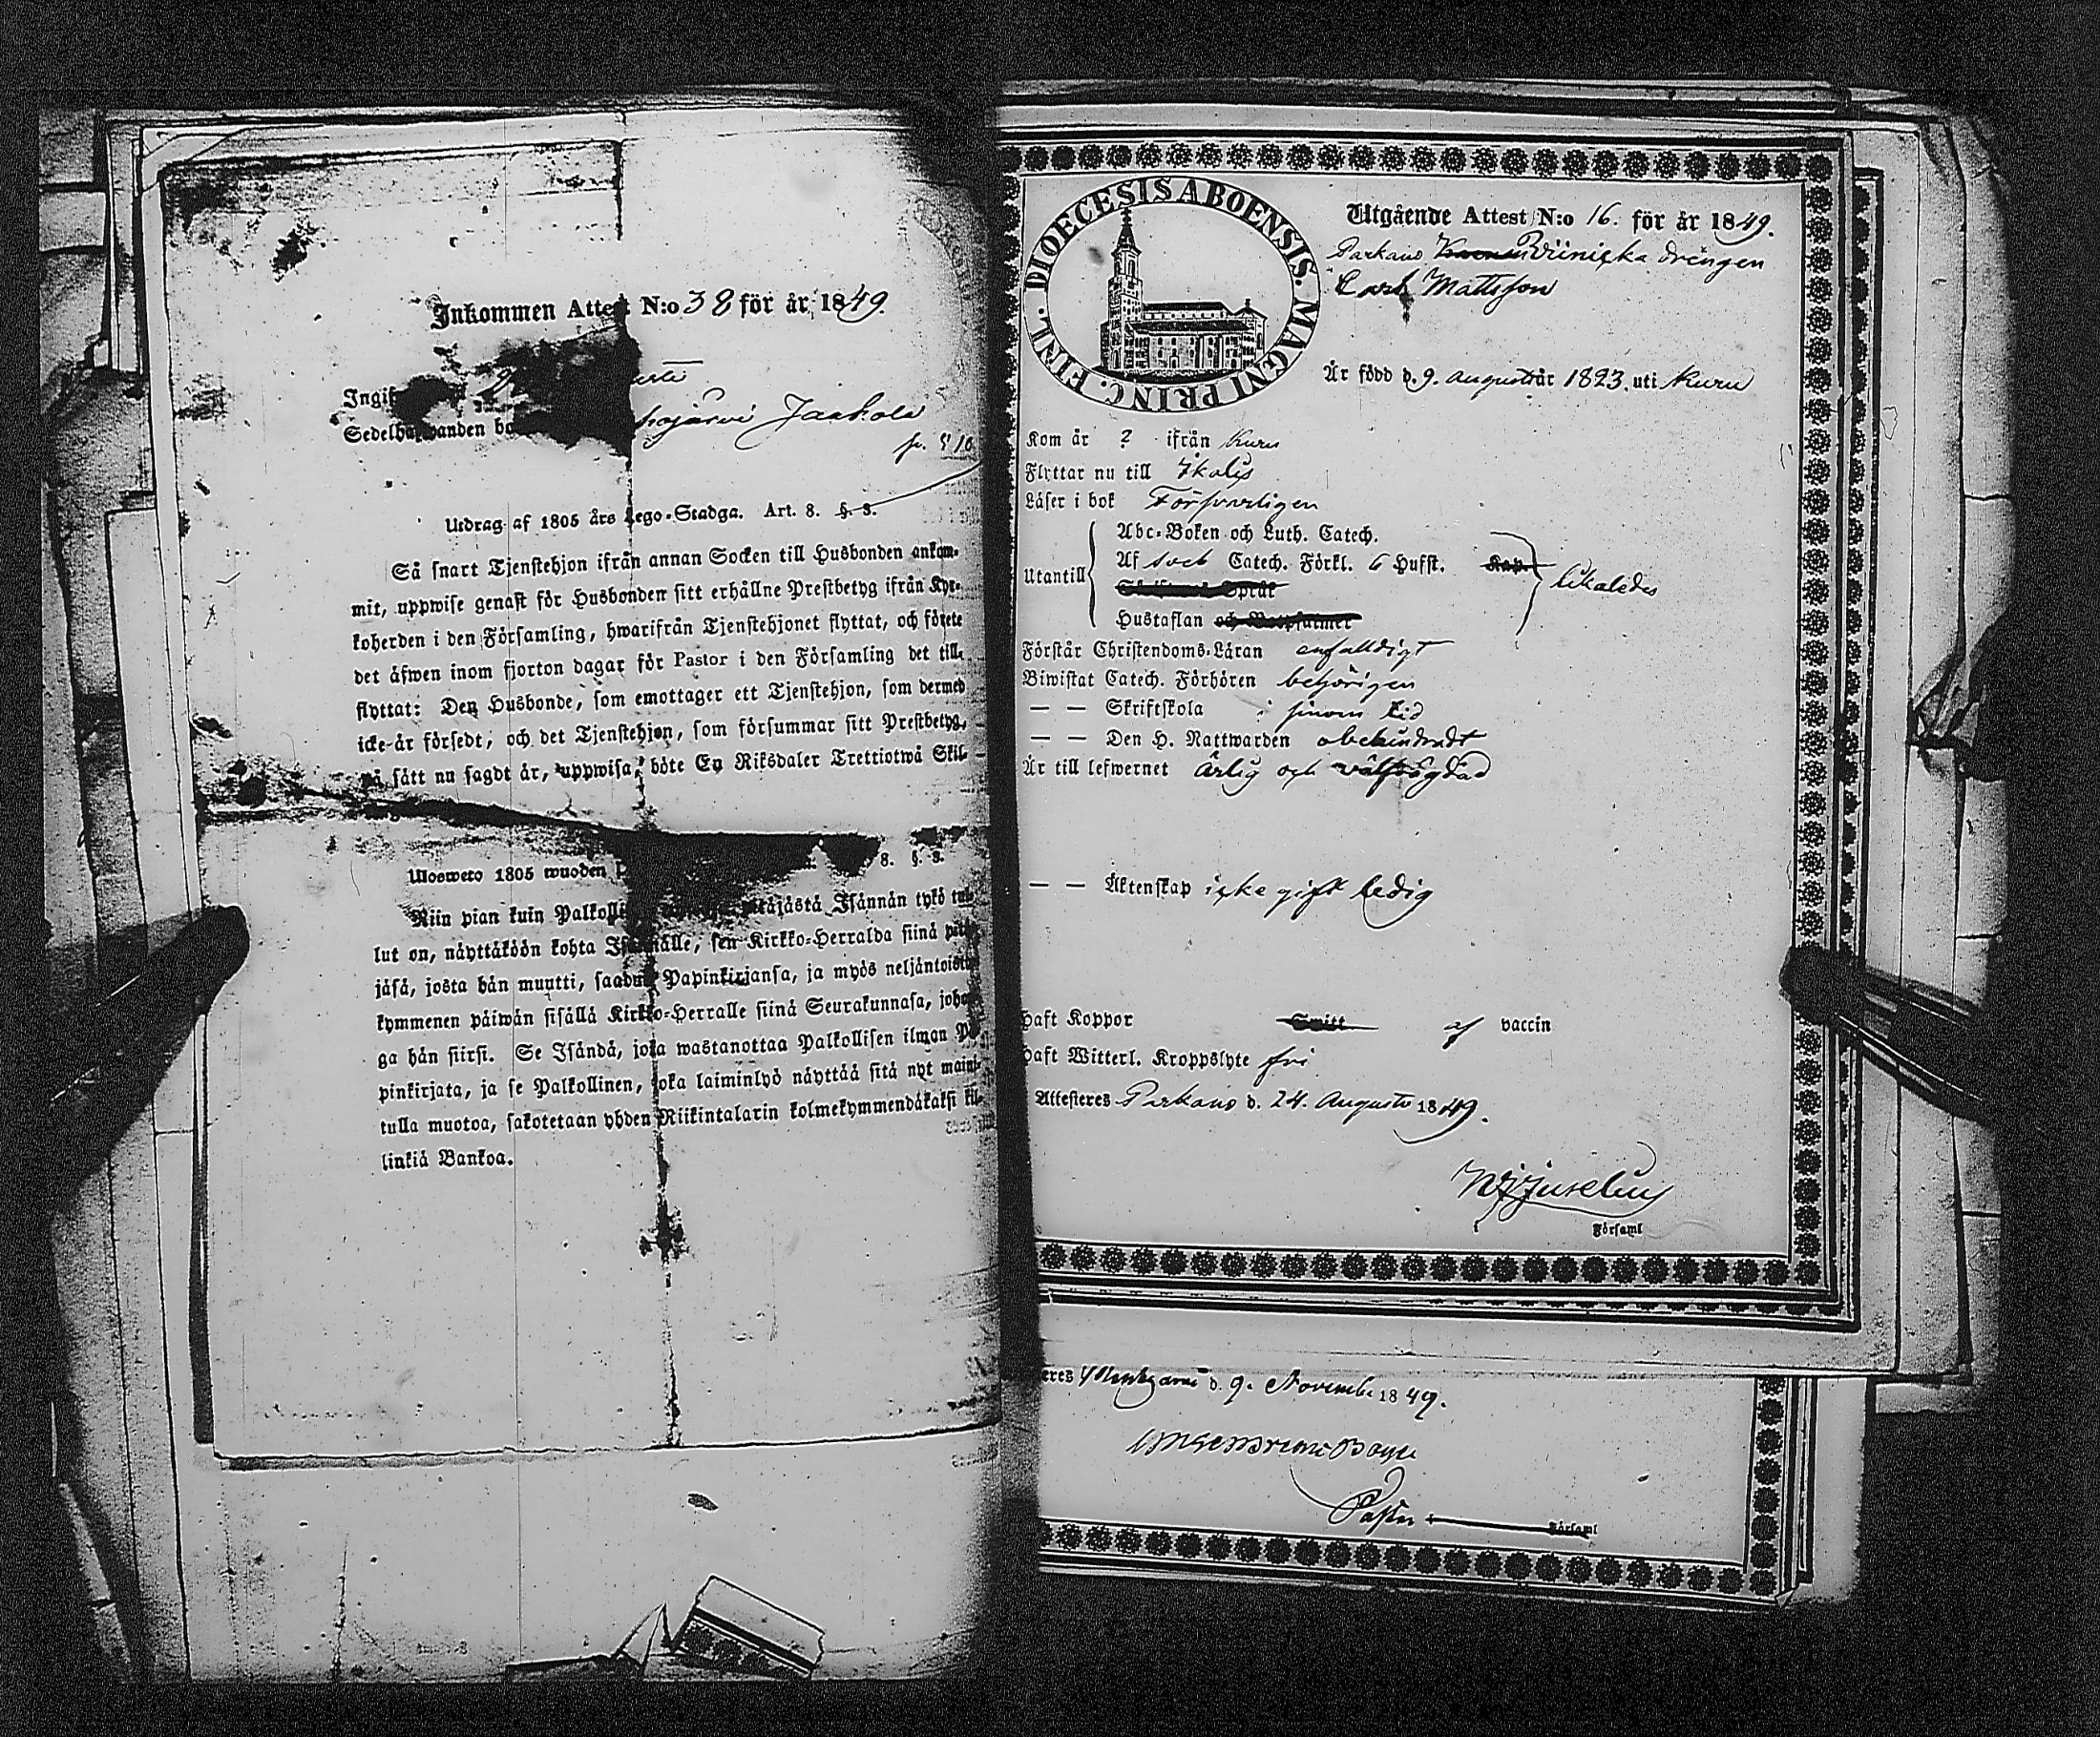 Inkommen Attest N:o 38 för år 1849.
Ingif
Sedelhafwanden bo järvi Jaakola
p. 510
Utdrag af 1805 års Lego-Stadga. Art. 8. §. 3.
Så snart Tjenstehjon ifrån annan Socken till Husbonden ankom-
mit, uppwise genast för Husbonden sitt erhållne Prestbetyg ifrån Kyr-
koherden i den Församling, hwarifrån Tjenstehjonet flyttat, och förete
det äfwen inom fjorton dagar för Pastor i den Församling det till-
flyttat: Den Husbonde, som emottager ett Tjenstehjon, som dermed
icke är försedt, och det Tjenstehjon, som försummar sitt Prestbetyg,
på sätt nu sagdt är, uppwisa, böte En Riksdaler Trettiotwå Skil-
Ulosweto 1805 wuoden P 8. §. 3.
Niin pian kuin Palkolli täjästä Isännän tykö tul-
lut on, näyttäköön kohta Isännälle, sen Kirkko-Herralda siinä pitä-
jäsä, josta hän muutti, saadun Papinkirjansa, ja myös neljäntoista
kymmenen päiwän sisällä Kirkko-Herralle siinä Seurakunnasa, joho
ga hän siirsi. Se Isändä, joka wastanottaa Palkollisen ilman Pa
pinkirjata, ja se Palkollinen, joka laiminlyö näyttää sitä nyt maini-
tulla muotoa, sakotetaan yhden Riikintalarin kolmekymmendäkaksi kil-
linkiä Bankoa.
DIOECESIS ABOENSIS. MAGNI PRINC. FINL.
Utgående Attest N:o 16. för år 1849.
Parkano Viiniska drängen
Carl Mattsson
Är född d. 9. August år 1823. uti Kuru
Kom år ? ifrån Kuru
Flyttar nu till Ikalis
Läser i bok Försvarligen
Utantill
Abc-Boken och Luth. Catech.
Af Sveb Catech. Förkl. 6 Hufst. Kap.
Skriftens Språk
Hustaflan och Botpsalmer
likaledes
Förstår Christendoms-Läran enfalldigt
Biwistat Catech. Förhören behörigen
— — Skriftskola i sinom tid
— — Den H. Nattwarden obehindradt
Är till lefwernet ärlig och välfrägdad
— — Äktenskap icke gift ledig
haft Koppor Smitt af vaccin
haft Witterl. Kroppslyte fri
Attesteres Parkano d. 24. Augusti 1849.
Juselius
Församl
eres d. 9. November 1849.
Pastor Församl